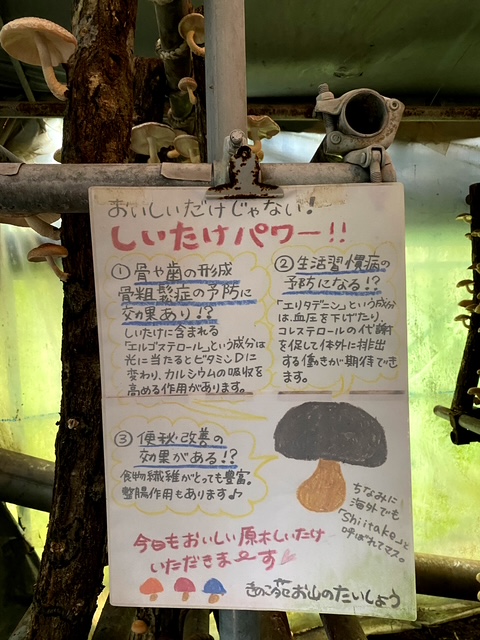 おいしいだけじゃない!
しいたけパワー!!
①骨や歯の形成
骨粗鬆症の予防に
効果あり!?
しいたけに含まれる
「エルゴステロール」という成分は
光に当たるとビタミンDに
変わり、カルシウムの吸収を
高める作用があります。
②生活習慣病の
予防になる!?
「エリタデニン」という成分
は、血圧を下げたり、
コレステロールの代謝
を促して体外に排出
する働きが期待でき
ます。
③便秘・改善の
効果がある!?
食物繊維がとっても豊富。
整腸作用もあります♪
ちなみに!
海外でも
「Shiitake」と
呼ばれてマス。
今日もおいしい原木しいたけ
いただきま〜す♡
きのこ荘お山のたいしょう